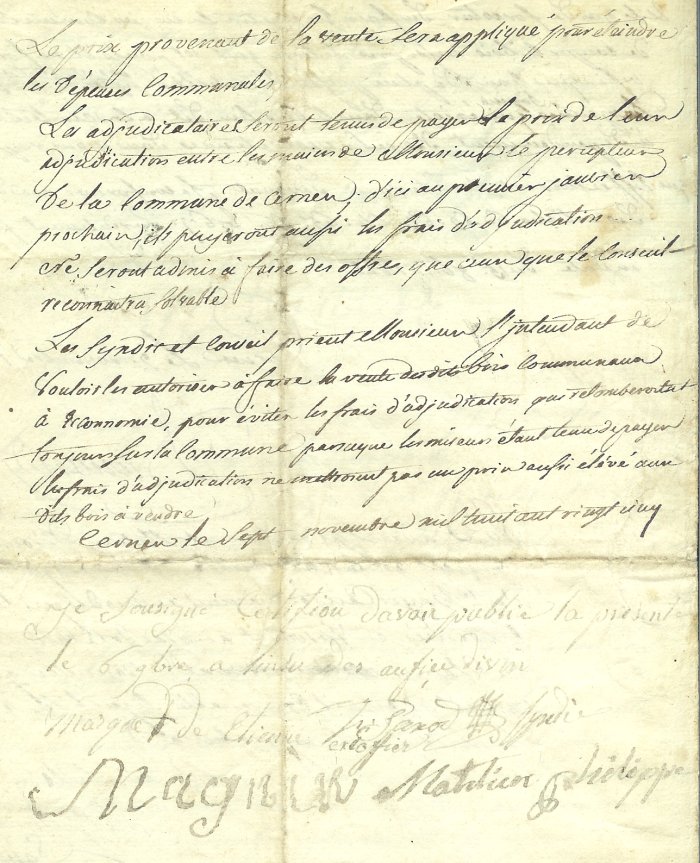 Le prix provenant de la vente sera appliqué pour éteindre
les dépenses Communales,
Les adjudicataires seront tenus de payer le prix de leur
adjudication entre les mains de Monsieur le percepteur
De la Commune de Cernex, d'ici au premier janvier
prochain, ils payeront aussi les frais d'adjudication
seront admis à faire des offres, que ceux que le Conseil
reconnaitra solvable
Les Syndic et Conseil prient Monsieur l'intendant de
Vouloir les autoriser à faire la vente desdits bois Communaux
à Economie, pour éviter les frais d'adjudication qui retomberoient
toujours sur la Commune parceque les miseurs étant tenu de payer
les frais d'adjudication ne mettront pas un prix aussi élévé aux
Dits bois à vendre
Cernex le Sept novembre mil huit cent vingt cinq
Je Sousigné Certifiou davoir publié la présente
le 6 9bre a lissu des aufice divin
Marque de Etienne Syndic
Magnin Mathieu philippe